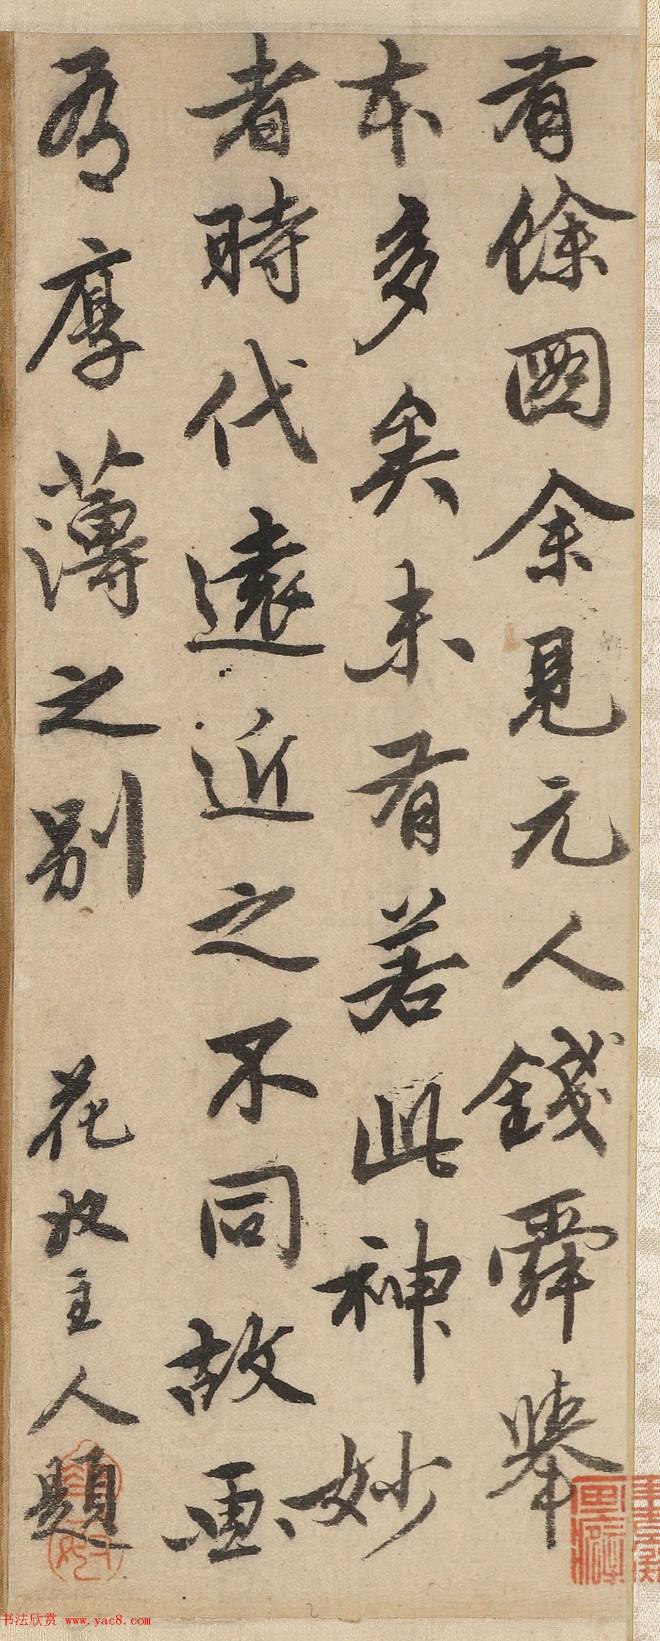 有餘圖余見元人錢舜舉
本多矣未有若此神妙
者時代遠近之不同故画
有厚薄之别
花奴主人題
书法欣赏 www.yac8.com